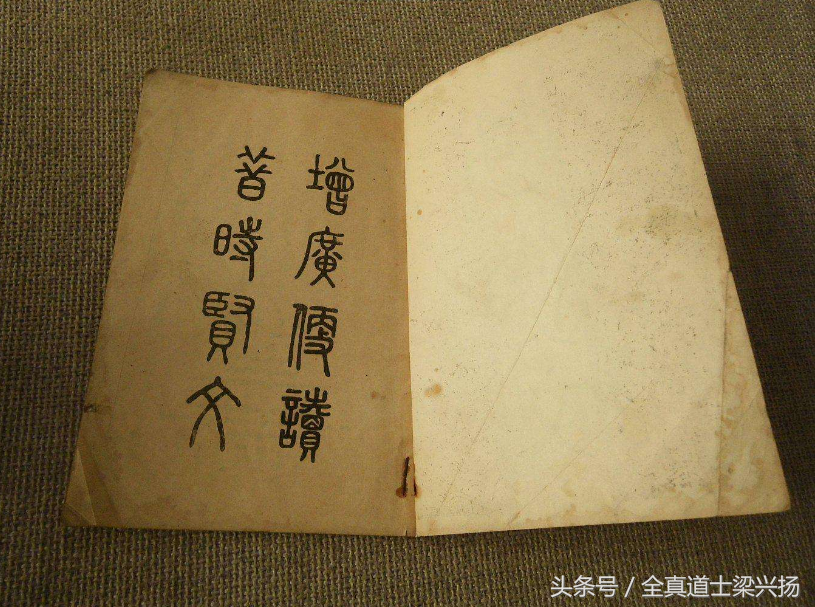 增廣便讀
昔時賢文
头条号 / 全真道士梁兴扬